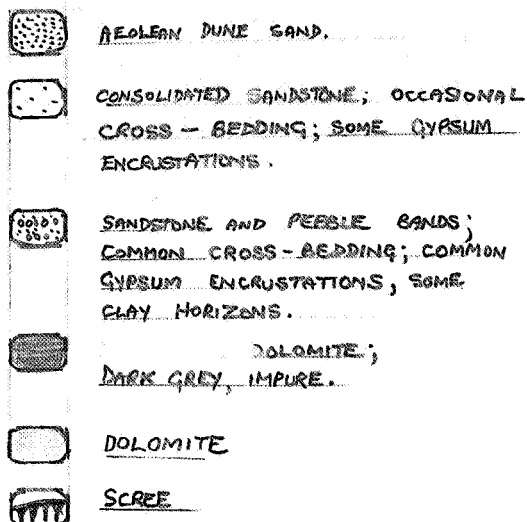 AEOLEAN DUNE SAND.
CONSOLIDATED SANDSTONE; OCCASIONAL
CROSS - BEDDING; SOME GYPSUM
ENCRUSTATIONS.
SANDSTONE AND PEEBLE BANDS;
COMMON CROSS-BEDDING; COMMON
GYPSUM ENCRUSTATIONS, SOME
CLAY HORIZONS.
DOLOMITE;
DARK GREY, IMPURE.
DOLOMITE
SCREE